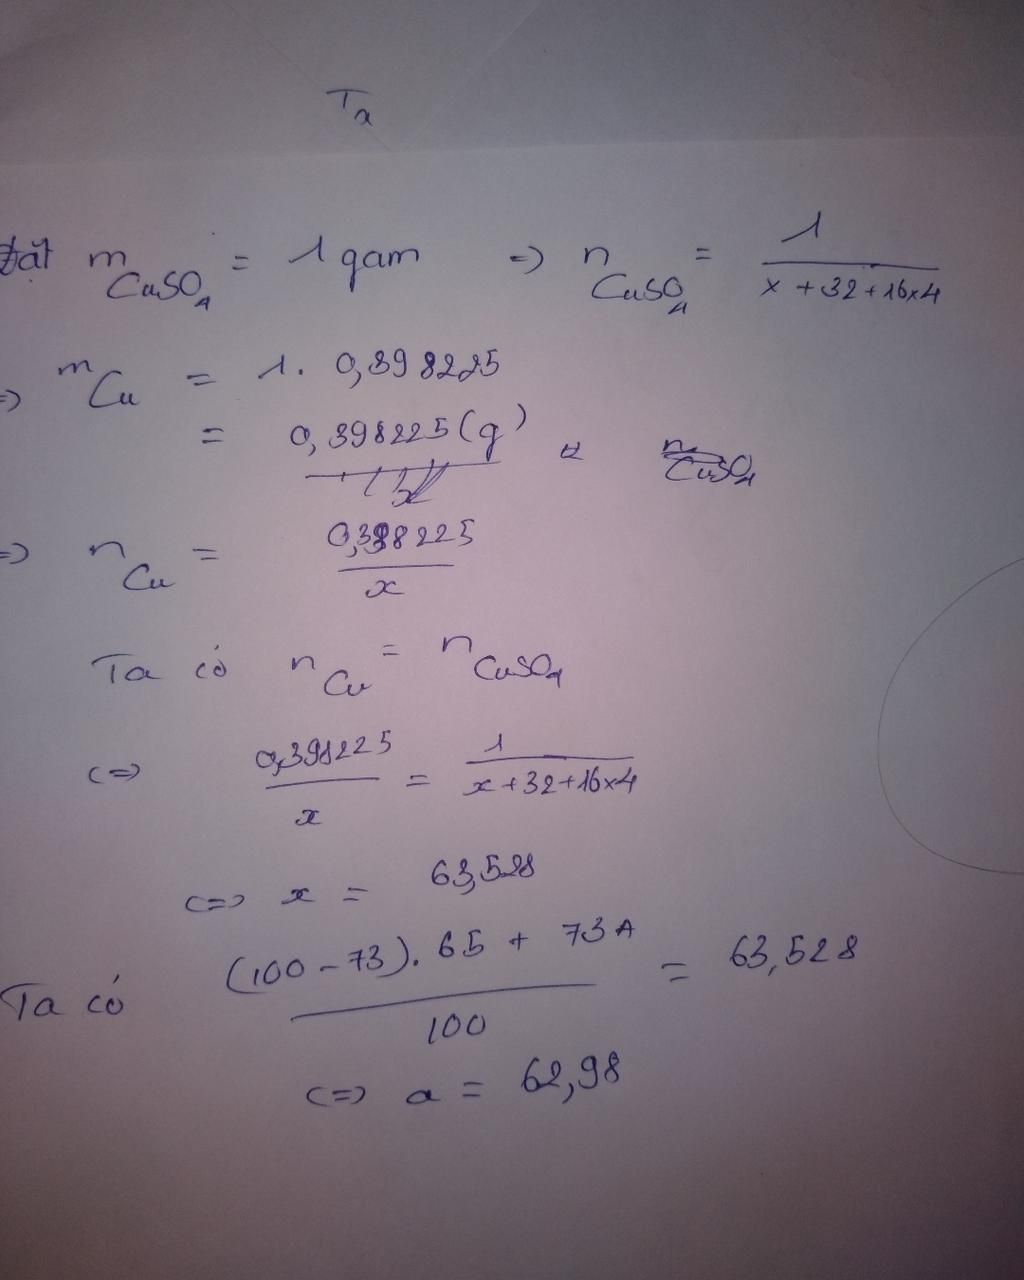 Ta
Đặt m CuSO4 = 1 gam => n CuSO4 = 1 / (x + 32 + 16x4)
=> m Cu = 1. 0,398225
= 0,398225 (g)
=> n Cu = 0,398225 / x
Ta có n Cu = n CuSO4
<=> 0,398225 / x = 1 / (x + 32 + 16x4)
<=> x = 63,528
Ta có ((100 - 73). 65 + 73A) / 100 = 63,528
<=> a = 62,98